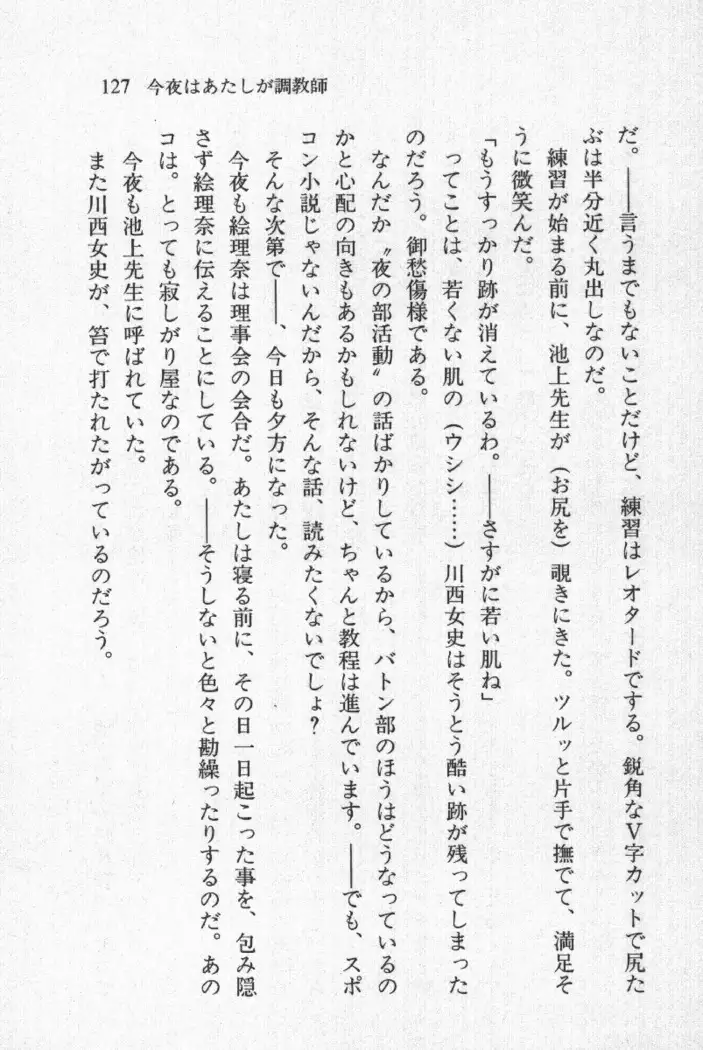 127 今夜はあたしが調教師
だ。――言うまでもないことだけど、練習はレオタードでする。鋭角なV字カットで尻た
ぶは半分近く丸出しなのだ。
練習が始まる前に、池上先生が(お尻を)覗きにきた。ツルッと片手で撫でて、満足そ
うに微笑んだ。
「もうすっかり跡が消えているわ。――さすがに若い肌ね」
ってことは、若くない肌の(ウシシ……)川西女史はそうとう酷い跡が残ってしまった
のだろう。御愁傷様である。
なんだか〝夜の部活動〟の話ばかりしているから、バトン部のほうはどうなっているの
かと心配の向きもあるかもしれないけど、ちゃんと教程は進んでいます。――でも、スポ
コン小説じゃないんだから、そんな話、読みたくないでしょ?
そんな次第で――、今日も夕方になった。
今夜も絵理奈は理事会の会合だ。あたしは寝る前に、その日一日起こった事を、包み隠
さず絵理奈に伝えることにしている。――そうしないと色々と勘繰ったりするのだ。あの
コは。とっても寂しがり屋なのである。
今夜も池上先生に呼ばれていた。
また川西女史が、笞で打たれたがっているのだろう。